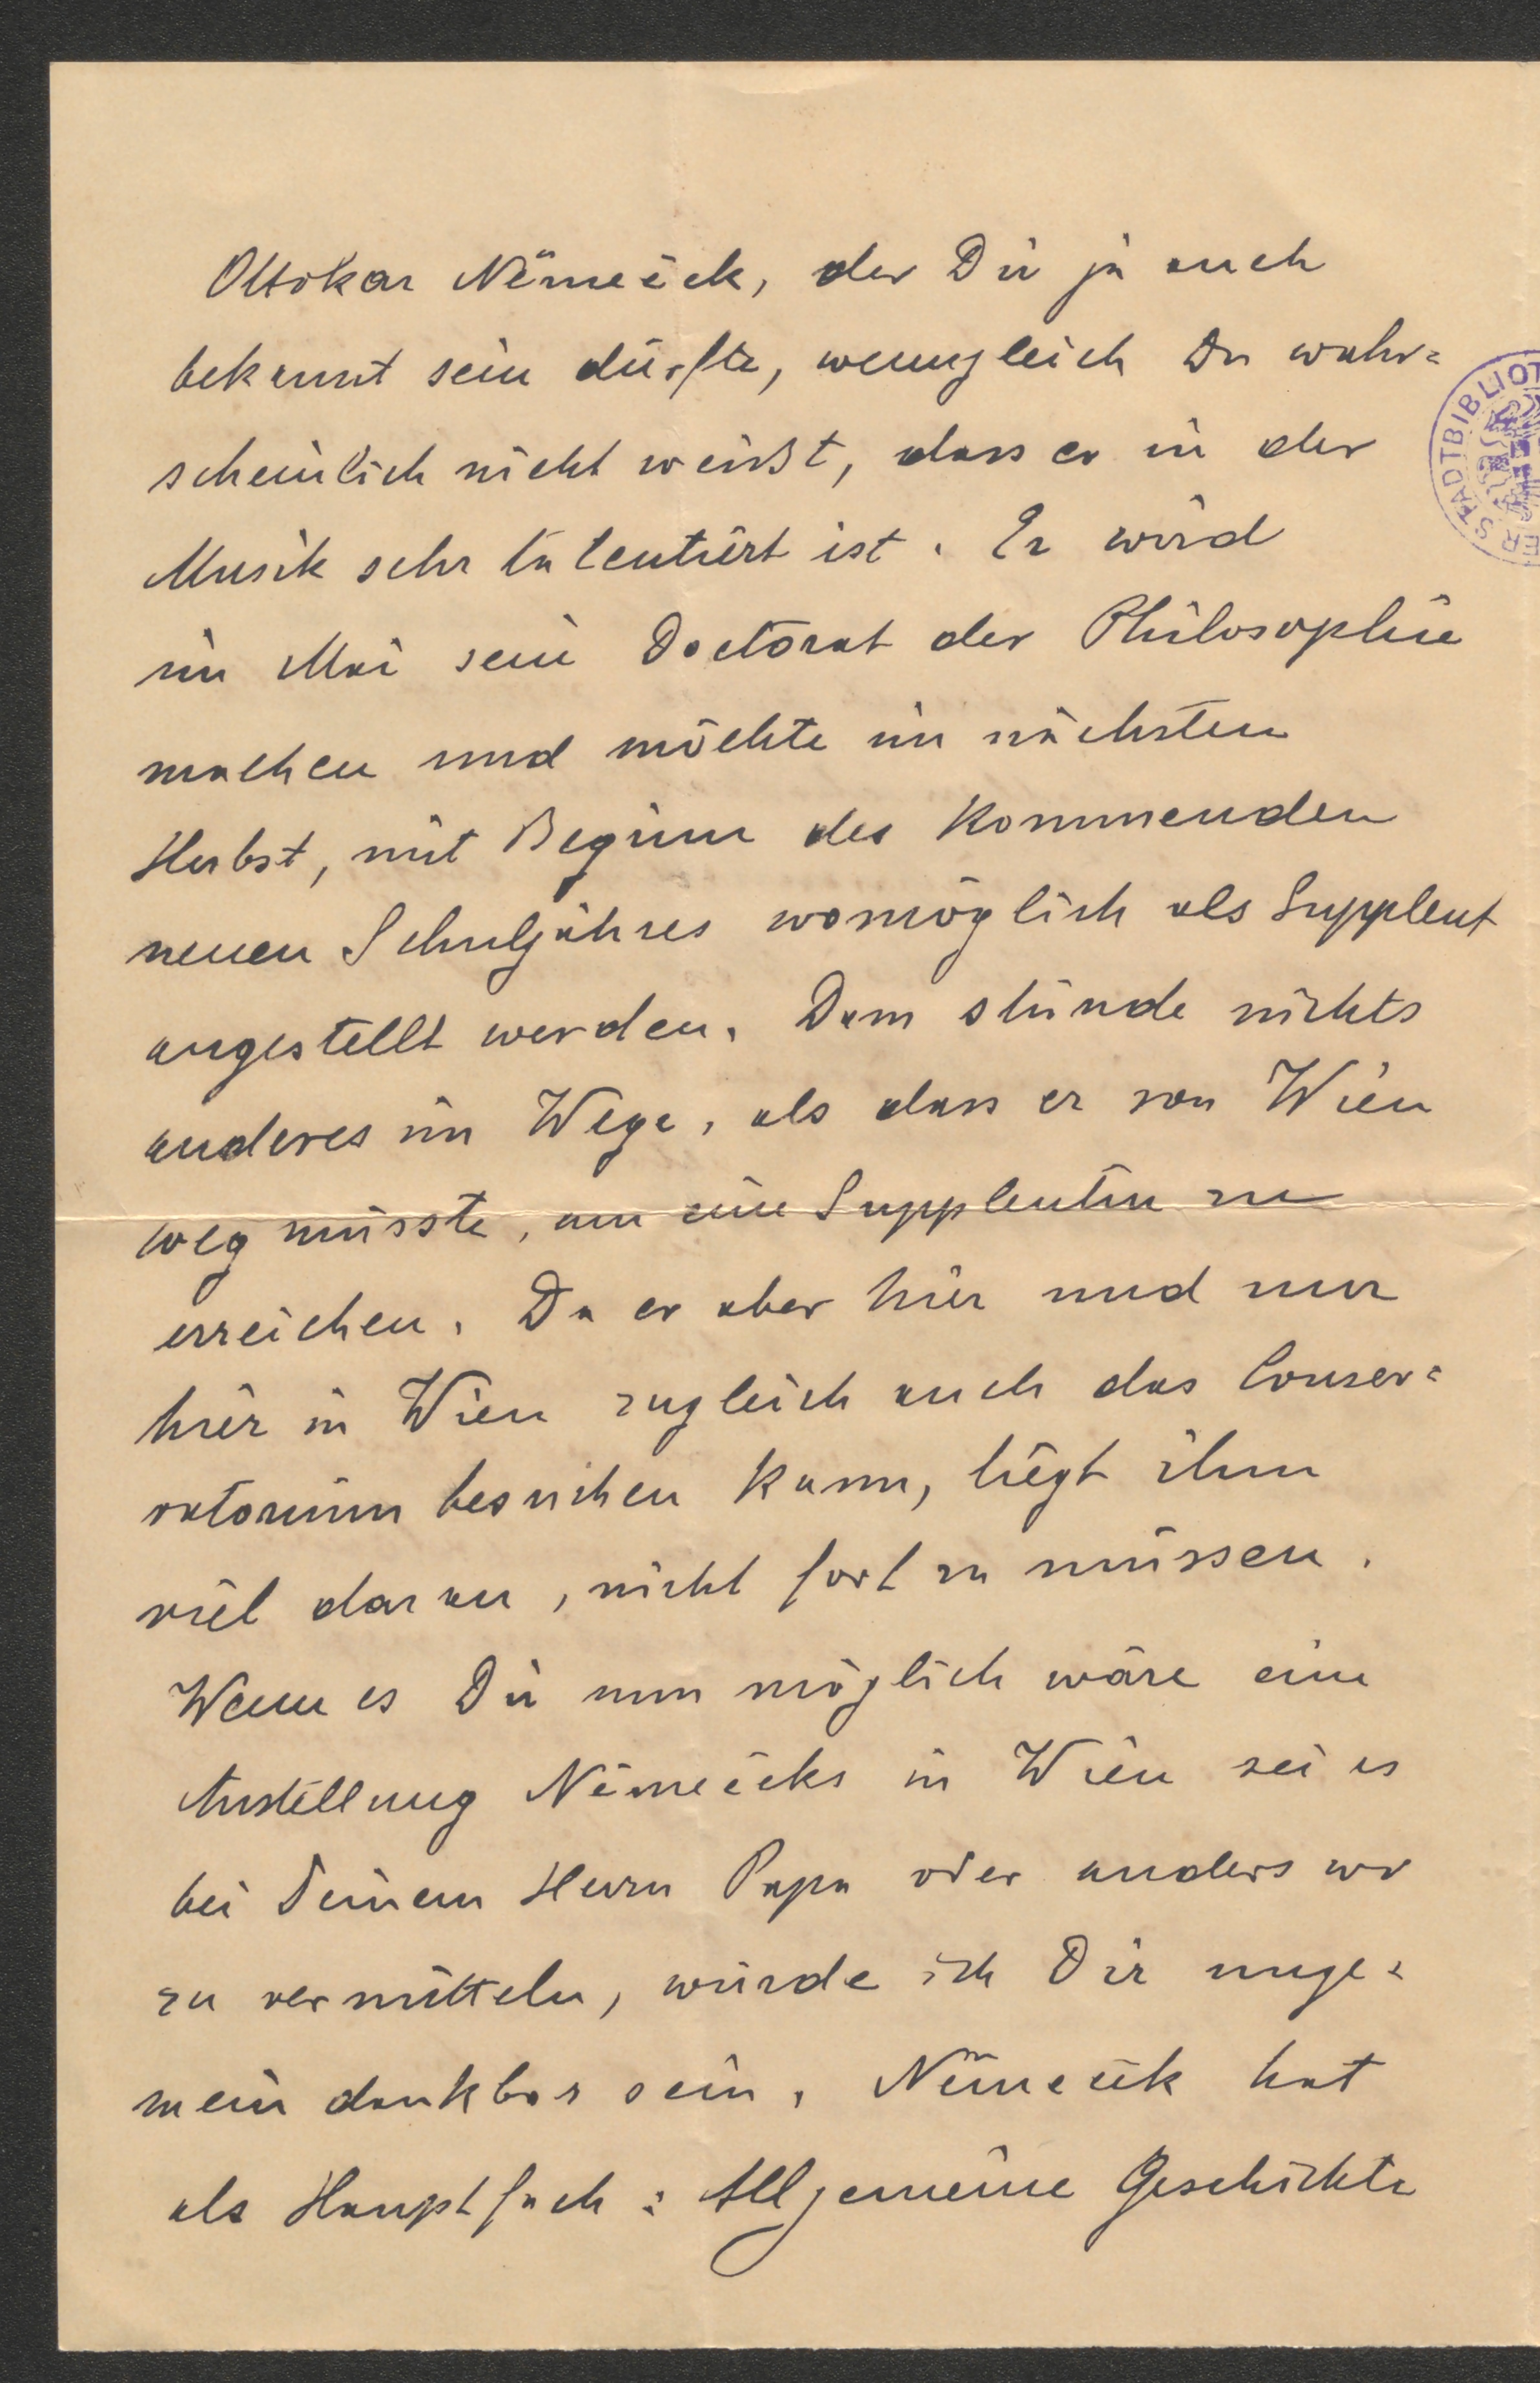 Ottokar Němeček, der Dir ja auch
bekannt sein dürfte, wenngleich Du wahr=
scheinlich nicht weißt, dass er in der
Musik sehr talentiert ist. Er wird
im Mai sein Doctorat der Philosophie
machen und möchte im nächsten
Herbst, mit Beginn des kommenden
neuen Schuljahres womöglich als Supplent
angestellt werden. Dem stünde nichts
anderes im Wege, als dass er von Wien
weg müsste, um eine Supplentur zu
erreichen. Da er aber hier und nur
hier in Wien zugleich auch das Conser=
vatorium besuchen kann, liegt ihm
viel daran, nicht fort zu müssen.
Wenn es Dir nun möglich wäre eine
Anstellung Němečeks in Wien sei es
bei Deinem Herrn Papa oder anderswo
zu vermitteln, würde ich Dir unge=
mein dankbar sein. Němeček hat
als Hauptfach: Allgemeine Geschichte
STADTBIBLIOT
ER S